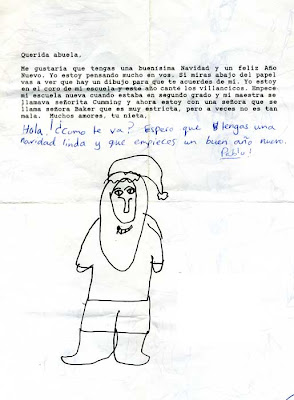 Querida abuela,
Me gustaría que tengas una buenísima Navidad y un feliz Año
Nuevo. Yo estoy pensando mucho en vos. Si miras abajo del papel
vas a ver que hay un dibujo para que te acuerdes de mí. Yo estoy
en el coro de mi escuela y este año canté los villancicos. Empecé
mi escuela nueva cuando estaba en segundo grado y mi maestra se
llamava señorita Cumming y ahora estoy con una señora que se
llama señora Baker que es muy estricta, pero a veces no es tan
mala. Muchos amores, tu nieta,
Hola! ¿Cómo te va? Espero que tengas una
navidad linda y que empieces un buen año nuevo.
Pablo!